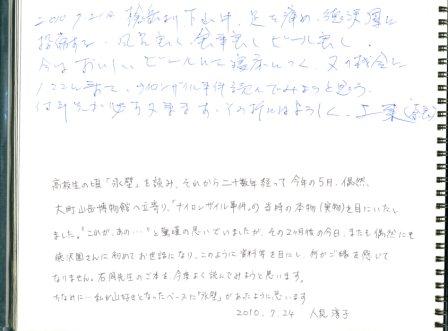 2010 7 21 槍岳より下山中、足を痛め、徳沢園に
宿泊する。風呂良し、食事良し、ビール良し。
今はおいしいビールにて寝床につく。又の機会に
ここに来て、ナイロンザイル事件読んでみようと思う。
何年先か必ず又来ます。その折にはよろしく。
高校生の頃「氷壁」を読み、それから二十数年経って今年の5月、偶然、
大町山岳博物館へ立寄り、「ナイロンザイル事件」の当時の本物(実物)を目にいたし
ました。"これが、あの…"と驚嘆の思いでいましたが、その2ヶ月後の今日、またも偶然にも
徳沢園さんに初めてお世話になり、このように資料等を目にし、何かご縁を感じて
なりません。石岡先生のご本も、今度よく読んでみようと思います。
ちなみに…私が山好きとなったベースに「氷壁」があったように思います
2010.7.24 人見